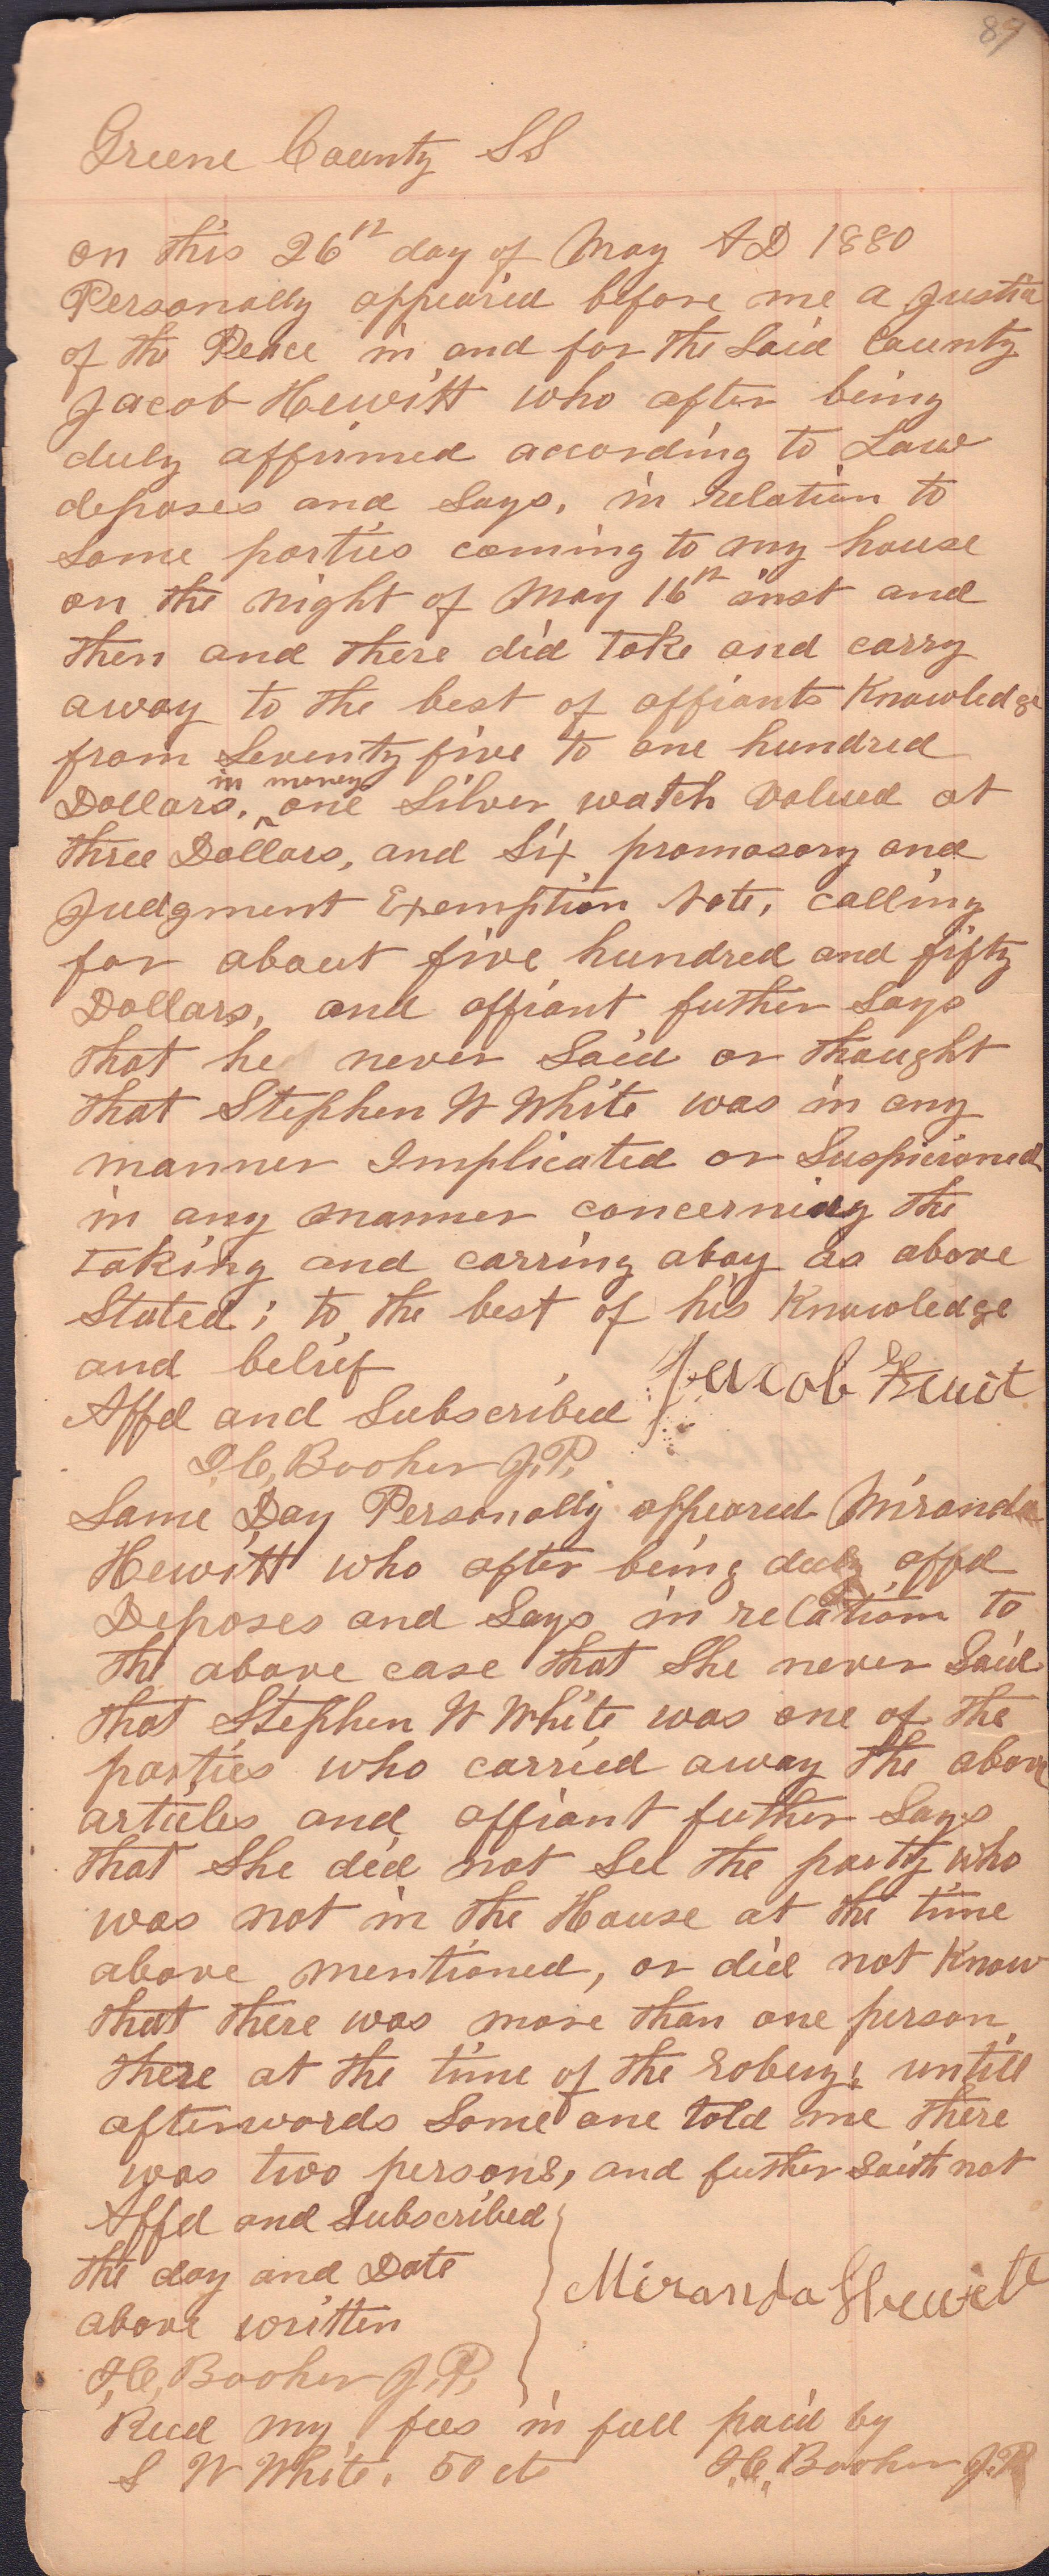 89
Greene County SS
on this 26th day of May AD 1880
Personally appeared before me a Justice
of the Peace in and for the Said County
Jacob Hewitt who after being
duly affirmed according to Law
deposes and Says, in relation to
Some parties coming to my house
on the night of May 16th inst and
then and there did take and carry
away to the best of affiants Knowledge
from Seventy five to one hundred
in money
Dollars, ^ one Silver watch valued at
three Dollars, and Six promosory and
Judgment Exemption Note, calling
for about five hundred and fifty
Dollars, and affiant futher Says
that he never Said or thought
that Stephen W White was in any
manner Implicated or Suspicioned
in any manner concerning the
taking and carring abay as above
Stated; to the best of his Knowledge
and belief
Jacob Hewit
Affd and Subscribed
J.C. Booher J.P.
Same Day Personally appeared Miranda
Hewitt who after being duly affd
Deposes and Says in relation to
the above case that She never Said
that Stephen W White was one of the
parties who carried away the above
articles and affiant futher Says
that She did not See the party who
was not in the House at the time
above mentioned, or did not Know
that there was more than one person
there at the time of the robery; untill
afterwords Some one told me there
was two persons, and futher Saith not
Affd and Subscribed
the day and Date
above written
Miranda Hewitt
J.C. Booher J.P.
Recd my fees in full paid by
S W White. 50 cts J.C. Booher J.P.